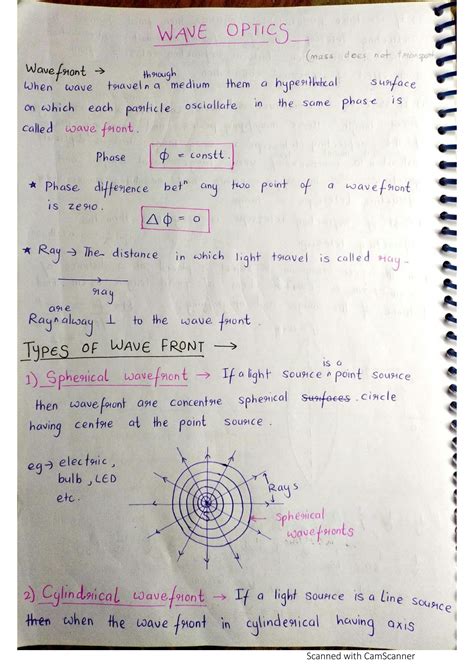 WAVE OPTICS
(mass does not transport
Wavefront →
through
When wave traveln a medium them a hyperthetical surface
on which each particle osciallate in the same phase is
called wave front.
Phase ϕ = constt.
★ Phase difference betⁿ any two point of a wavefront
is zero.
Δϕ = 0
★ Ray → The distance in which light travel is called ray-
ray
are
Rayn alway ⊥ to the wave front.
TYPES OF WAVE FRONT →
is a
1) Spherical wavefront → If a light source n point source
then wavefront are concentre spherical surfaces. circle
having centre at the point source.
eg → electric,
bulb, LED
etc.
Rays
spherical
wavefronts
2) Cylindrical wavefront → If a light source is a Line source
then when the wave front in cylinderical having axis
Scanned with CamScanner